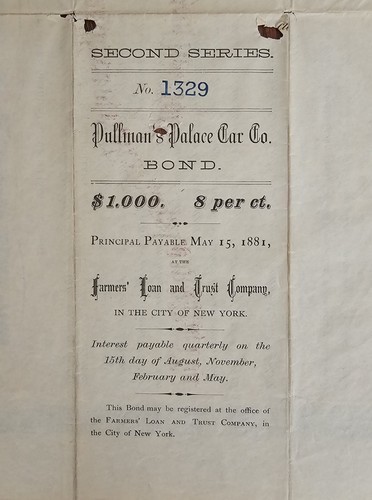 SECOND SERIES.
No. 1329
Pullman's Palace Car Co.
BOND.
$1.000. 8 per ct.
PRINCIPAL PAYABLE MAY 15, 1881,
AT THE
Farmers' Loan and Trust Company,
IN THE CITY OF NEW YORK.
Interest payable quarterly on the
15th day of August, November,
February and May.
This Bond may be registered at the office of
the FARMERS' LOAN AND TRUST COMPANY, in
the City of New York.